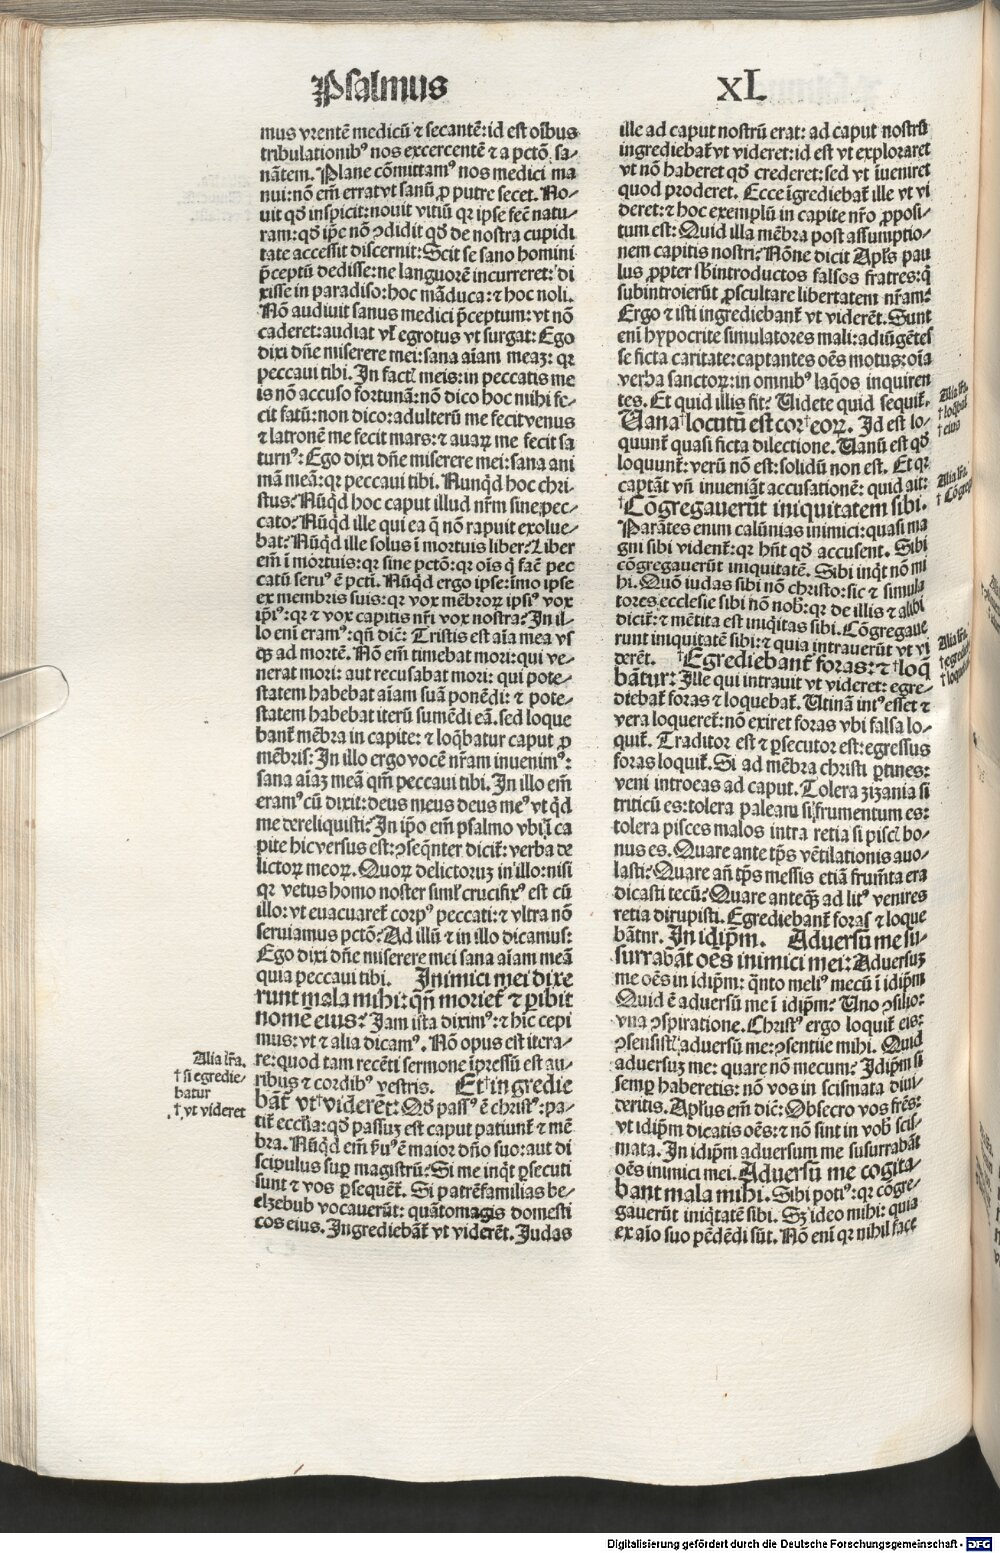 Psalmus
xL
mus vrentē medicū ⁊ secantē: id est oībus
tribulationibꝰ nos excercentē ⁊ a pctō sa⸗
nātem. Plane cōmittamꝰ nos medici ma
nui: nō em̄ errat vt sanū ꝓ putre secet. No⸗
uit qd̄ inspicit: nouit vitiū qr ipse fec̄ natu⸗
ram: qd̄ ip̄e nō ↄdidit qd̄ de nostra cupidi
tate accessit discernit: Scit se sano homini
p̄ceptū dedisse: ne languorē incurreret: di
xisse in paradiso: hoc māduca: ⁊ hoc noli.
Nō audiuit sanus medici p̄ceptum: vt nō
caderet: audiat vl̓ egrotus vt surgat: Ego
dixi dn̄e miserere mei: sana aīam meaꝫ: qr
peccaui tibi. In factꝭ meis: in peccatis me
is nō accuso fortunā: nō dico hoc mihi fe⸗
cit fatū: non dico: adulterū me fecit venus
⁊ latronē me fecit mars: ⁊ auaꝝ me fecit sa
turnꝰ: Ego dixi dn̄e miserere mei: sana ani
mā meā: qr peccaui tibi. Nunqd̓ hoc chri⸗
stus? Nūqd̓ hoc caput illud nr̄m sine pec⸗
cato? Nūqd̓ ille qui ea q̄ nō rapuit exolue⸗
bat? Nūqd̓ ille solus ī mortuis liber? Liber
em̄ ī mortuis: qr sine pctō: qr oīs q̓ fac̄ pec
catū seruꝰ ē pcti. Nūqd̓ ergo ipse: īmo ipse
ex membris suis: qr vox mēbroꝝ ipsiꝰ vox
ip̄iꝰ: qr ⁊ vox capitis nr̄i vox nostra? In il⸗
lo eni eramꝰ: qn̄ dic̄: Tristis est aīa mea vs
qꝫ ad mortē. Nō em̄ timebat mori: qui ve⸗
nerat mori: aut recusabat mori: qui pote⸗
statem habebat aīam suā ponēdi: ⁊ pote⸗
statem habebat iterū sumēdi eā. sed loque
bant̄ mēbra in capite: ⁊ loq̄batur caput ꝓ
mēbris: In illo ergo vocē nr̄am inuenimꝰ:
sana aīaꝫ meā qm̄ peccaui tibi. In illo em̄
eramꝰ cū dixit: deus meus deus meꝰ vt qd̓
me dereliquisti? In ip̄o em̄ psalmo vbi ī ca
pite hic versus est: ↄseq̄nter dicit̄: verba de
lictoꝝ meoꝝ. Quoꝝ delictoruꝫ in illo: nisi
qr vetus homo noster siml̓ crucifixꝰ est cū
illo: vt euacuaret̄ corpꝰ peccati: ⁊ vltra nō
seruiamus pctō? Ad illū ⁊ in illo dicamus:
Ego dixi dn̄e miserere mei sana aīam meā
quia peccaui tibi. Inimici mei dixe
runt mala mihi: qn̄ moriet̄ ⁊ ꝑibit
nomē eius? Jam ista diximꝰ: ⁊ hic cepi
mus: vt ⁊ alia dicamꝰ. Nō opus est itera⸗
re: quod tam recēti sermone īpressū est au⸗
ribus ⁊ cordibꝰ vestris. Et †ingredie
bāt̄ vt †viderēt: Qd̓ passꝰ ē christꝰ: pa⸗
tit̄ eccl̓ia: qd̓ passuꝫ est caput patiunt̄ ⁊ mē
bra. Nūqd̓ em̄ ẜuꝰ ē maior dn̄o suo: aut di
scipulus suꝑ magistrū? Si me inqt̓ ꝑsecuti
sunt ⁊ vos ꝑsequēt̄. Si patrēfamilias be⸗
elzebub vocauerūt: quātomagis domesti
cos eius. Ingrediebāt̄ vt viderēt. Judas
Alia lr̄a.
† si egredie⸗
batur
† vt videret
ille ad caput nostrū erat: ad caput nostrū
ingrediebat̄ vt videret: id est vt exploraret
vt nō haberet qd̓ crederet: sed vt īueniret
quod proderet. Ecce īgrediebat̄ ille vt vi
deret: ⁊ hoc exemplū in capite nr̄o ꝓposi⸗
tum est: Quid illa mēbra post assumptio⸗
nem capitis nostri? Nōne dicit Apl̓s pau
lus ꝓpter sb̓introductos falsos fratres: q̓
subintroierūt ꝓscultare libertatem nr̄am?
Ergo ⁊ isti ingrediebant̄ vt viderēt. Sunt
eni hypocrite simulatores mali: adiūgētes
se ficta caritate: captantes oēs motus: oīa
verba sanctoꝝ: in omnibꝰ laq̄os inquiren
tes. Et quid illis fit? Videte quid sequit̄.
Vana †locutū est cor †eoꝝ. Id est lo⸗
quunt̄ quasi ficta dilectione. Vanū est qd̓
loquunt̄: verū nō est: solidū non est. Et qr
captāt vn̄ inueniāt accusationē: quid ait:
†Cōgregauerūt iniquitatem sibi.
Parātes enim calūnias inimici: quasi ma
gni sibi vident̄: qr hn̄t qd̓ accusent. Sibi
cōgregauerūt iniquitatē. Sibi inqt̓ nō mi
hi. Quō iudas sibi nō christo: sic ⁊ simula
tores ecclesie sibi nō nob̓: qr de illis ⁊ alibi
dicit̄: ⁊ mētita est iniqtas sibi. Cōgregaue
runt iniquitatē sibi: ⁊ quia intrauerūt vt vi
derēt. †Egrediebant̄ foras: ⁊ †loq̄
bātur: Ille qui intrauit vt videret: egre⸗
diebat̄ foras ⁊ loquebat̄. Utinā intꝰ esset ⁊
vera loqueret̄: nō exiret foras vbi falsa lo⸗
quit̄. Traditor est ⁊ ꝑsecutor est: egressus
foras loquit̄. Si ad mēbra christi ꝑtines:
veni introeas ad caput. Tolera zizania si
triticū es: tolera paleam si frumentum es:
tolera pisces malos intra retia si piscꝭ bo⸗
nus es. Quare ante tp̄s vētilationis auo⸗
lasti? Quare an̄ tp̄s messis etiā frum̄ta era
dicasti tecū? Quare anteqꝫ ad litꝰ venires
retia dirupisti. Egrediebant̄ foras ⁊ loque
bātnr. In idip̄m. Aduersū me su⸗
surrabāt oēs inimici mei: Aduersuꝫ
me oēs in idip̄m: qn̄to meliꝰ mecū ī idip̄m
Quid ē aduersū me ī idip̄m? Uno ↄsilio:
vna ↄspiratione. Christꝰ ergo loquit̄ eis:
ↄsensistꝭ aduersū me: ↄsentite mihi. Quid
aduersuꝫ me: quare nō mecum? Idip̄m si
semꝑ haberetis: nō vos in scismata diui⸗
deritis. Apl̓us em̄ dic̄: Obsecro vos fr̄es:
vt idip̄m dicatis oēs: ⁊ nō sint in vob̓ scis⸗
mata. In idip̄m aduersum me susurrabāt
oēs inimici mei. Aduersū me cogita⸗
bant mala mihi. Sibi potiꝰ: qr cōgre⸗
gauerūt iniqtatē sibi. Sꝫ ideo mihi: quia
ex aīo suo pēdēdi sūt. Nō eni qr nihil face
Alia lr̄a.
† loq̄bat̄
† eius
Alia lr̄a
Alia lr̄a.
Digitalisierung gefördert durch die Deutsche Forschungsgemeinschaft - DFG